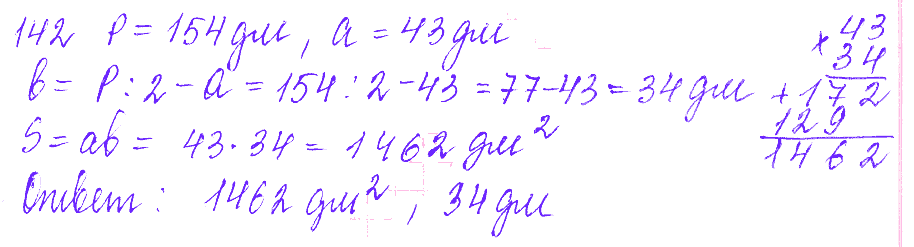 142 P = 154 дм, a = 43 дм
b = P : 2 - a = 154 : 2 - 43 = 77 - 43 = 34 дм
S = ab = 43 · 34 = 1462 дм²
Ответ: 1462 дм², 34 дм
× 43
34
+ 172
129
1462